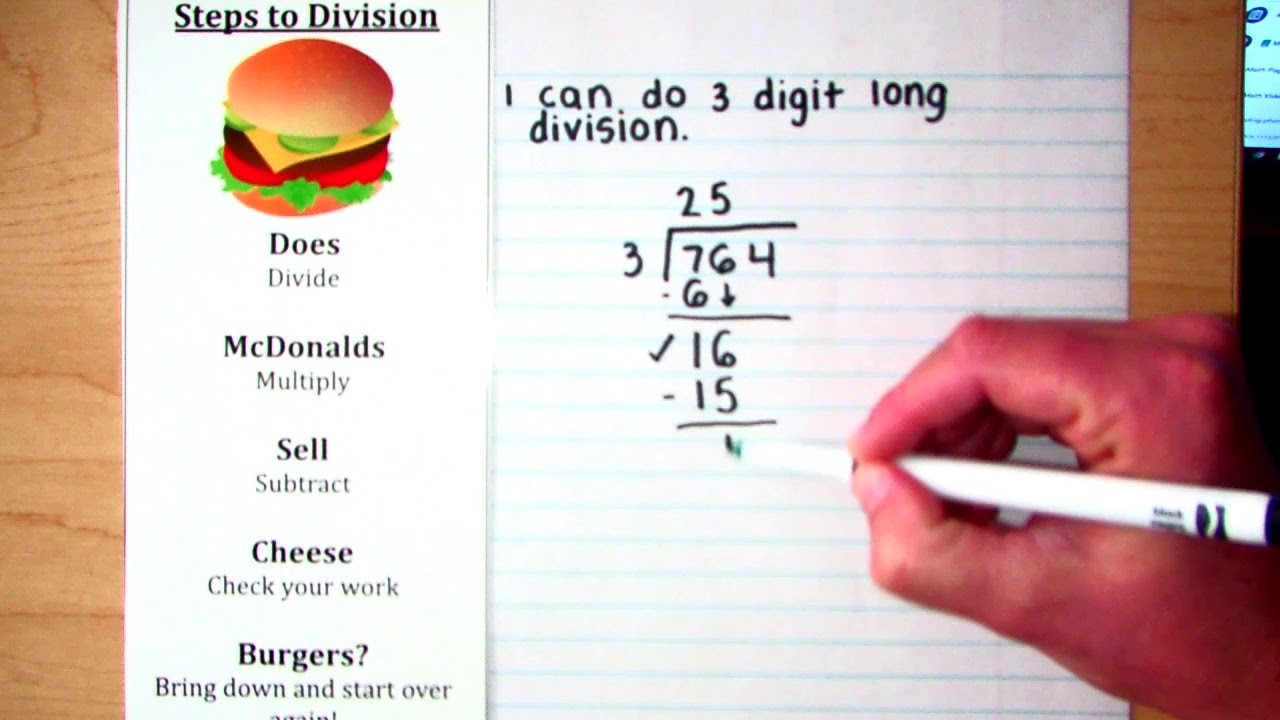 Steps to Division
Does
Divide
McDonalds
Multiply
Sell
Subtract
Cheese
Check your work
Burgers?
Bring down and start over
again!
I can do 3 digit long
division.
25
3 764
- 6 ↓
✓ 16
- 15